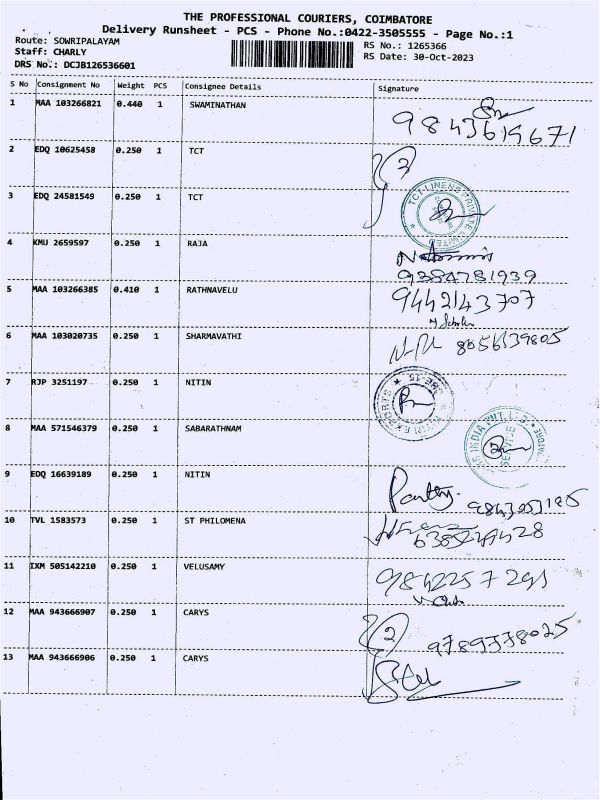 THE PROFESSIONAL COURIERS, COIMBATORE
Delivery Runsheet - PCS - Phone No.:0422-3505555 - Page No.:1
Route: SOWRIPALAYAM
Staff: CHARLY
DRS No.: DCJB126536601
RS No.: 1265366
RS Date: 30-Oct-2023
S No Consignment No Weight PCS Consignee Details Signature
1 MAA 103266821 0.440 1 SWAMINATHAN
9843619671
2 EDQ 10625458 0.250 1 TCT
3 EDQ 24581549 0.250 1 TCT
TCT-LINENS PRIVATE LIMITED
4 KMU 2659597 0.250 1 RAJA
9384781939
5 MAA 103266385 0.410 1 RATHNAVELU
9442143707
6 MAA 103020735 0.250 1 SHARMAVATHI
8056139805
7 RJP 3251197 0.250 1 NITIN
8 MAA 571546379 0.250 1 SABARATHNAM
INDIA PVT. LTD.
9 EDQ 16639189 0.250 1 NITIN
10 TVL 1583573 0.250 1 ST PHILOMENA
11 IXM 505142210 0.250 1 VELUSAMY
12 MAA 943666907 0.250 1 CARYS
2
9789778025
13 MAA 943666906 0.250 1 CARYS